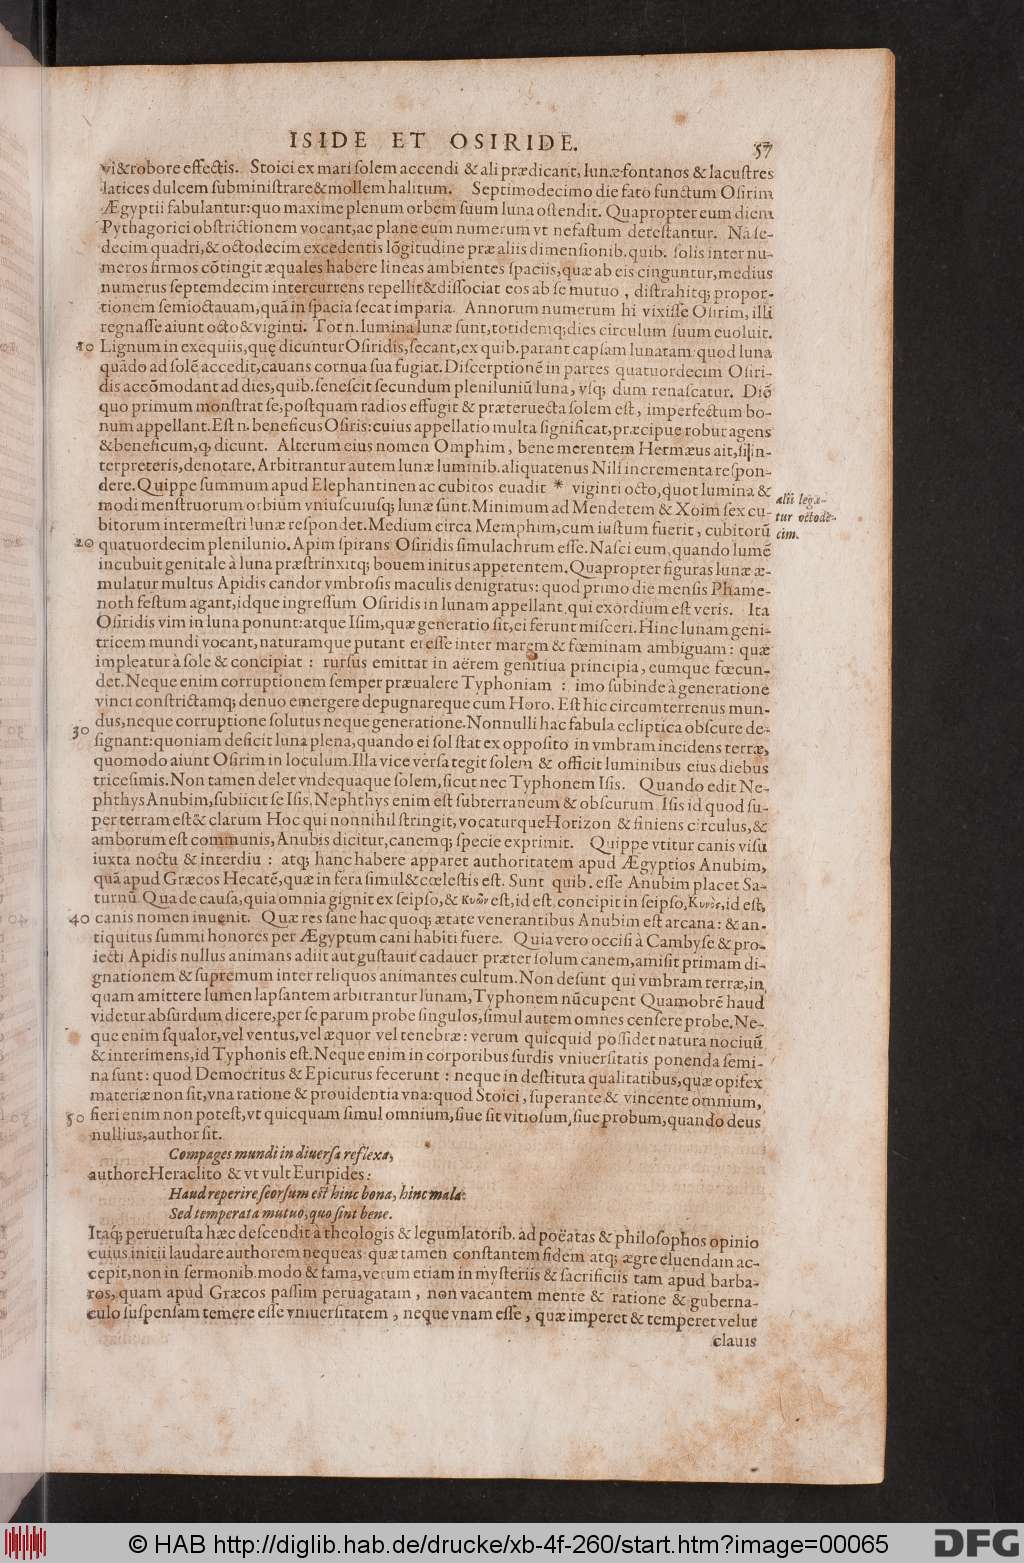 ISIDE ET OSIRIDE. 57
vi & robore effectis. Stoici ex mari solem accendi & ali prædicant, lunæ fontanos & lacustres
latices dulcem subministrare & mollem halitum. Septimodecimo die fato functum Osirim
Ægyptii fabulantur: quo maxime plenum orbem suum luna ostendit. Quapropter eum diem
Pythagorici obstrictionem vocant, ac plane eum numerum vt nefastum detestantur. Nā se-
decim quadri, & octodecim excedentis lōgitudine præ aliis dimensionib. quib. solis inter nu-
meros firmos cōtingit æquales habere lineas ambientes spaciis, quæ ab eis cinguntur, medius
numerus septemdecim intercurrens repellit & dissociat eos ab se mutuo, distrahitq; propor-
tionem semioctauam, quā in spacia secat imparia. Annorum numerum hi vixisse Osirim, illi
regnasse aiunt octo & viginti. Tot n. lumina lunæ sunt, totidemq; dies circulum suum euoluit.
10 Lignum in exequiis, quę dicuntur Osiridis, secant, ex quib. parant capsam lunatam quod luna
quādo ad solē accedit, cauans cornua sua fugiat. Discerptionē in partes quatuordecim Osiri-
dis accōmodant ad dies, quib. senescit secundum pleniluniū luna, vsq; dum renascatur. Diē
quo primum monstrat se, postquam radios effugit & præteruecta solem est, imperfectum bo-
num appellant. Est n. beneficus Osiris: cuius appellatio multa significat, præcipue robur agens
& beneficum, q, dicunt. Alterum eius nomen Omphim, bene merentem Hermæus ait, si in-
terpreteris, denotare. Arbitrantur autem lunæ luminib. aliquatenus Nili incrementa respon-
dere. Quippe summum apud Elephantinen ac cubitos euadit * viginti octo, quot lumina &
alii legā-
modi menstruorum orbium vniuscuiusq; lunæ sunt. Minimum ad Mendetem & Xoim sex cu-
tur octodē-
bitorum intermestri lunæ respondet. Medium circa Memphim, cum iustum fuerit, cubitorū
cim.
20 quatuordecim plenilunio. Apim spirans Osiridis simulachrum esse. Nasci eum, quando lumē
incubuit genitale à luna præstrinxitq; bouem initus appetentem. Quapropter figuras lunæ æ-
mulatur multus Apidis candor vmbrosis maculis denigratus: quod primo die mensis Phame-
noth festum agant, idque ingressum Osiridis in lunam appellant, qui exordium est veris. Ita
Osiridis vim in luna ponunt: atque Isim, quæ generatio sit, ei ferunt misceri. Hinc lunam geni-
tricem mundi vocant, naturamque putant ei esse inter marem & fœminam ambiguam: quæ
impleatur à sole & concipiat: rursus emittat in aërem genitiua principia, eumque fœcun-
det. Neque enim corruptionem semper præualere Typhoniam: imo subinde à generatione
vinci constrictamq; denuo emergere depugnareque cum Horo. Est hic circumterrenus mun-
dus, neque corruptione solutus neque generatione. Nonnulli hac fabula ecliptica obscure de-
30 signant: quoniam deficit luna plena, quando ei sol stat ex opposito in vmbram incidens terræ,
quomodo aiunt Osirim in loculum. Illa vice versa tegit solem & officit luminibus eius diebus
tricesimis. Non tamen delet vndequaque solem, sicut nec Typhonem Isis. Quando edit Ne-
phthys Anubim, subiicit se Isis. Nephthys enim est subterraneum & obscurum Isis id quod su-
per terram est & clarum Hoc qui nonnihil stringit, vocaturque Horizon & finiens circulus, &
amborum est communis, Anubis dicitur, canemq; specie exprimit. Quippe vtitur canis visu
iuxta noctu & interdiu: atq; hanc habere apparet authoritatem apud Ægyptios Anubim,
quā apud Græcos Hecatē, quæ infera simul & cœlestis est. Sunt quib. esse Anubim placet Sa-
turnū Qua de causa, quia omnia gignit ex seipso, & Κυῶν est, id est concipit in seipso, Κυνὸς, id est,
40 canis nomen inuenit. Quæ res sane hac quoq; ætate venerantibus Anubim est arcana: & an-
tiquitus summi honores per Ægyptum cani habiti fuere. Quia vero occisi à Cambyse & pro-
iecti Apidis nullus animans adiit aut gustauit cadauer præter solum canem, amisit primam di-
gnationem & supremum inter reliquos animantes cultum. Non desunt qui vmbram terræ, in
quam amittere lumen lapsantem arbitrantur lunam, Typhonem nūcupent Quamobrē haud
videtur absurdum dicere, per se parum probe singulos, simul autem omnes censere probe. Ne-
que enim squalor, vel ventus, vel æquor vel tenebræ: verum quicquid possidet natura nociuū
& interimens, id Typhonis est. Neque enim in corporibus surdis vniuersitatis ponenda semi-
na sunt: quod Democritus & Epicurus fecerunt: neque in destituta qualitatibus, quæ opifex
materiæ non sit, vna ratione & prouidentia vna: quod Stoici, superante & vincente omnium,
50 fieri enim non potest, vt quicquam simul omnium, siue sit vitiosum, siue probum, quando deus
nullius, author sit.
Compages mundi in diuersa reflexa,
authore Heraclito & vt vult Euripides:
Haud reperire seorsum est hinc bona, hinc mala:
Sed temperata mutuo, quo sint bene.
Itaq; peruetusta hæc descendit à theologis & legumlatorib. ad poëtas & philosophos opinio
cuius initii laudare authorem nequeas quæ tamen constantem fidem atq; ægre eluendam ac-
cepit, non in sermonib. modo & fama, verum etiam in mysteriis & sacrificiis tam apud barba-
ros, quam apud Græcos passim peruagatam, non vacantem mente & ratione & guberna-
culo suspensam temere esse vniuersitatem, neque vnam esse, quæ imperet & temperet velut
clauis
© HAB http://diglib.hab.de/drucke/xb-4f-260/start.htm?image=00065
DFG